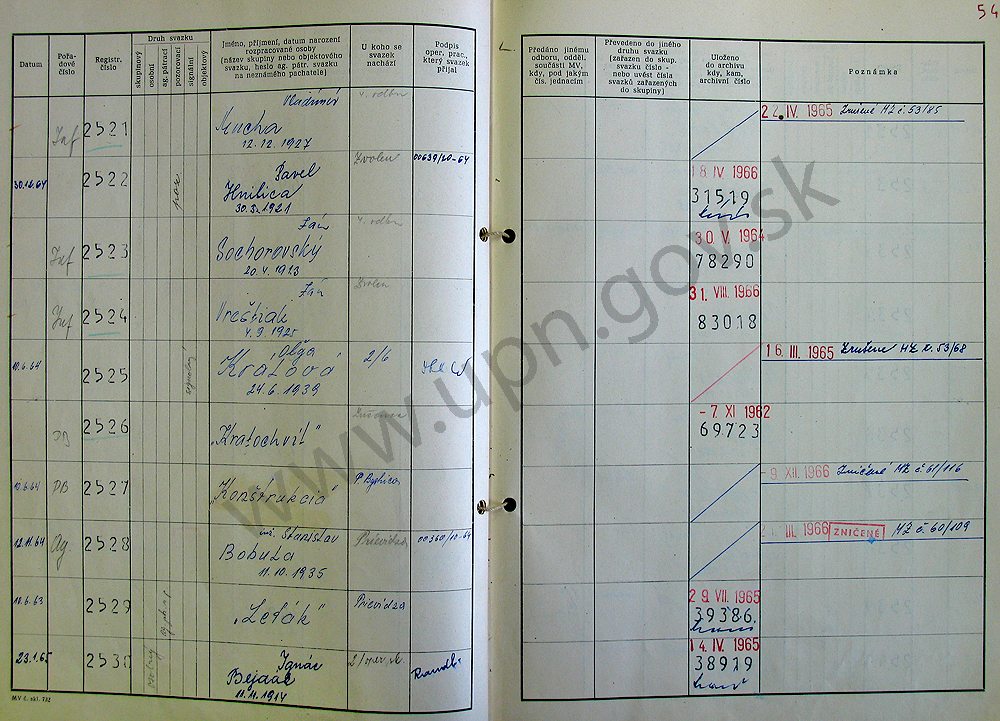 54
Datum
Pořa-
dové
číslo
Registr.
číslo
Druh svazku
skupinový
osobní
ag. pátrací
pozorovací
signální
objektový
Jméno, příjmení, datum narození
rozpracované osoby
(název skupiny nebo objektového
svazku, heslo ag. pátr. svazku
na neznámého pachatele)
U koho se
svazek
nachází
Podpis
oper, prac.,
který svazek
přijal
Předáno jinému
odboru, odděl.
součásti MV,
kdy, pod jakým
čís. jednacím
Převedeno do jiného
druhu svazku
(zařazen do skup.
svazku číslo -
nebo uvést čísla
svazků zařazených
do skupiny)
Uloženo
do archivu
kdy, kam,
archivní číslo
Poznámka
Inf 2521 Vladimír
Mucha
12.12.1927
22. IV. 1965 Zničené MZ č. 53/85
30.12.64 2522 poz Pavel
Hnilica
30.3.1921
Zvolen 00639/20-64
18. IV 1966
31519
Inf 2523 Ján
Sochorovský
20.V.1913
30. V. 1964
78290
Inf 2524 Ján
Vreštiak
4.9.1925
Zvolen
31. VIII. 1966
83018
10.6.64 2525 Oľga
Kráľová
24.6.1939
2/6
16. III. 1965 Zrušené MZ č. 53/68
2526 „Kratochvíl"
- 7. XI 1962
69723
10.6.64 PB 2527 „Konštrukcia"
P. Bystrica
- 9. XII. 1966 Zničené MZ č 61/116
12.11.64 Ag. 2528 ing. Stanislav
Bobula
11.10.1935
Prievidza 00360/10-64
III. 1966 ZNIČENÉ MZ č 60/109
18.6.63 2529 „Leták"
Prievidza
29. VII. 1965
39386.
23.1.65 2530 Ignác
11.11.1914
14. IV. 1965
38919
MV č. skl. 732
www.upn.gov.sk